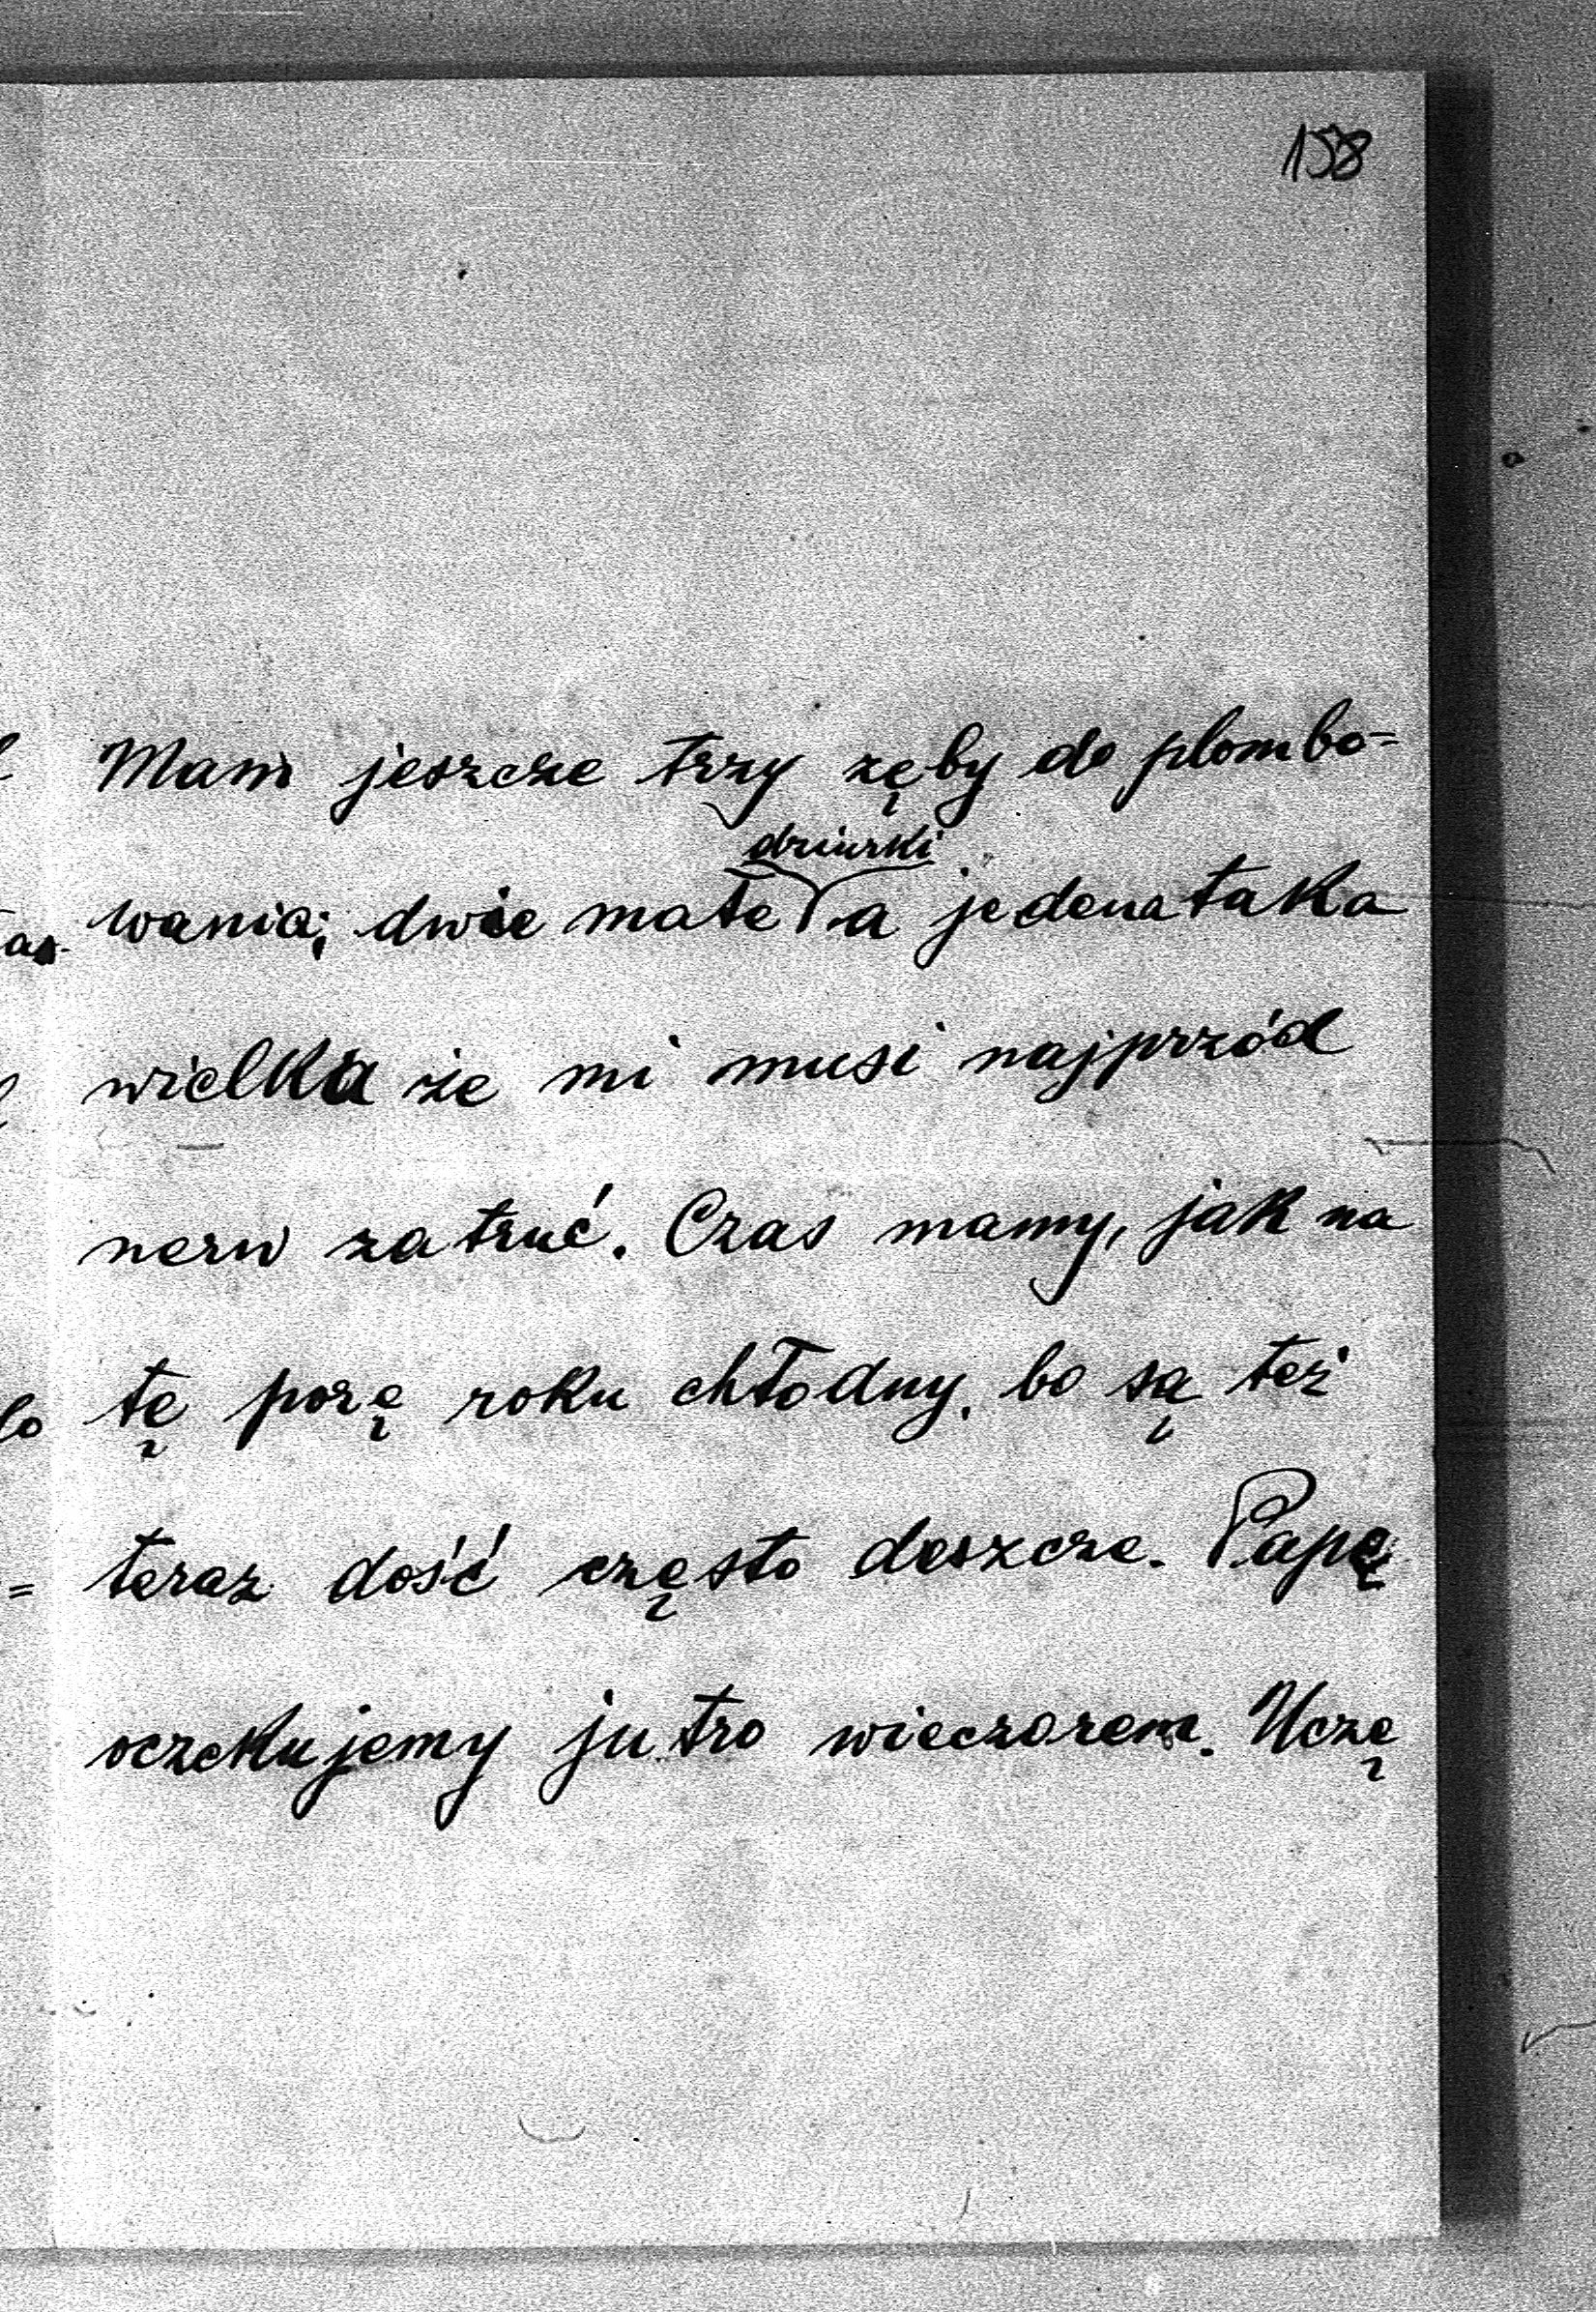 158
Mam jeszcze trzy zęby do plombo=
dziurki
wania; dwie małe a jedena taka
wielka że mi musi najprzód
nerw zatruć. Czas mamy, jak na
tę porę roku chłodny, bo są też
teraz dość często deszcze. Papę
oczekujemy jutro wieczorem. Uczę